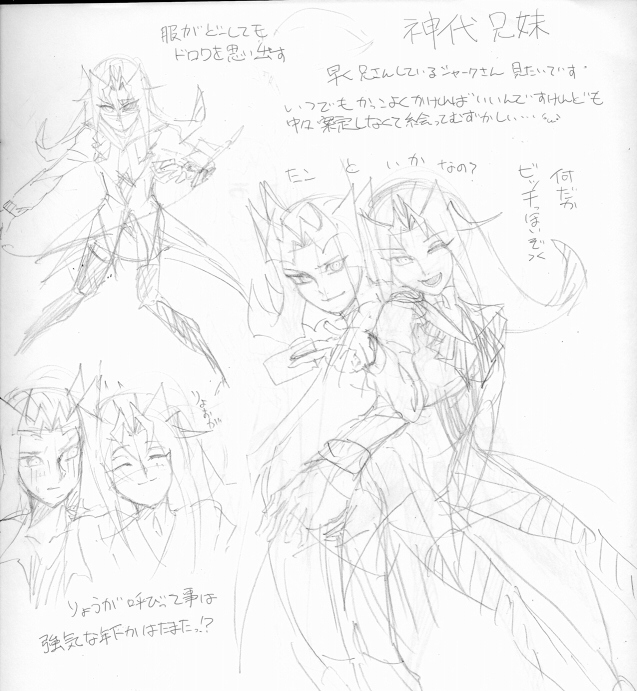 神代 兄妹
服がどーしても
ドロワを思い出す
早く兄さんしているシャークさん 見たいです。
いつでもかっこよくかければいいんですけれども
中々安定しなくて絵ってむずかしい…
たこ と いか なの?
何だか
ビッチっぽいぞっ
りょうが!!
りょうが呼びって事は
強気な年下かはたまたっ!?